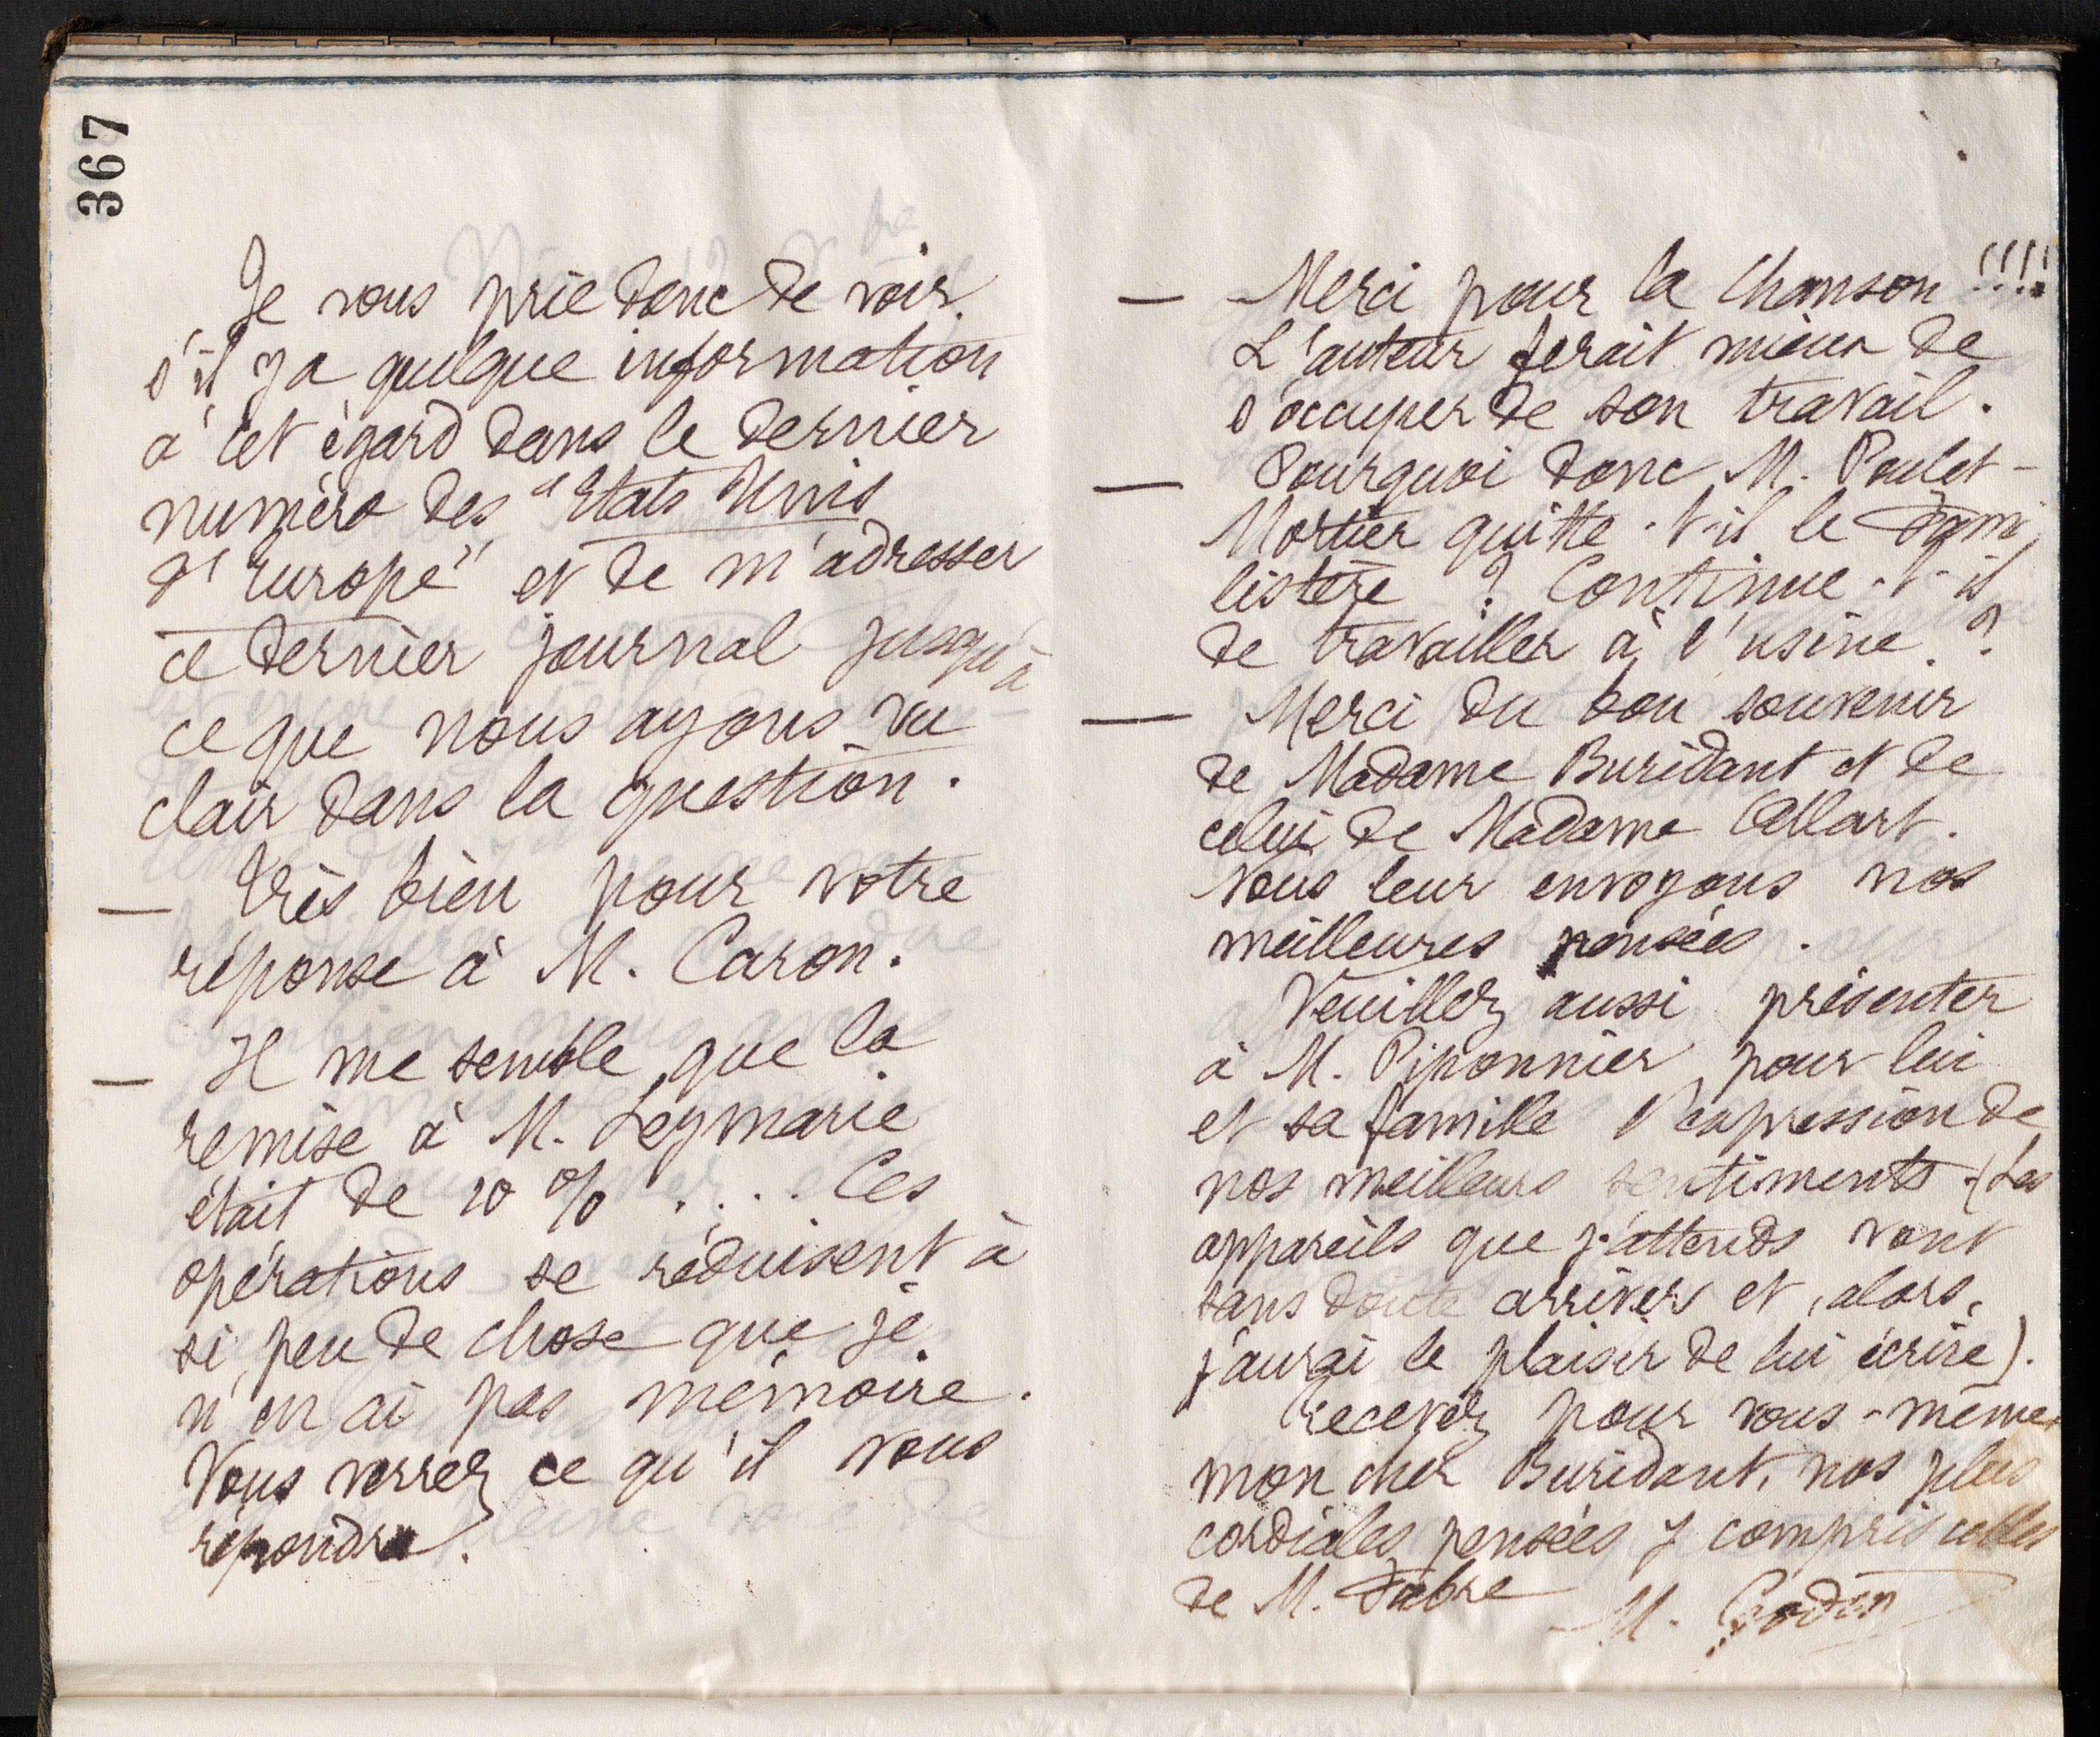 367
Je vous prie donc de voir
s'il y a quelque information
à cet égard dans le dernier
numéro des "Etats Unis
d'Europe" et de m'adresser
ce dernier journal jusqu'à
ce que nous ayons vu
clair dans la question.
— Très bien pour votre
réponse à M. Caron.
— Il me semble que la
remise à M. Leymarie
était de 10 % .... Ces
opérations se réduisent à
si peu de chose que je
n'en ai pas mémoire.
Vous verrez ce qu'il vous
répondra.
— Merci pour la Chanson !!!!
L'auteur ferait mieux de
s'occuper de son travail.
— Pourquoi donc M. Poulet-
Mortier quitte-t-il le
listère ? Continue-t-il
de travailler à l'usine ?
— Merci du bon souvenir
de Madame Buridant et de
celui de Madame Allart.
Nous leur envoyons nos
meilleures pensées.
Veuillez aussi présenter
à M. Piponnier pour lui
et sa famille l'expression de
nos meilleurs sentiments (Les
appareils que j'attends vont
sans doute arriver et, alors,
j'aurai le plaisir de lui écrire).
Recevez pour vous-même
mon cher Buridant, nos plus
cordiales pensées y compris celles
de M. Fabre
M. Godin